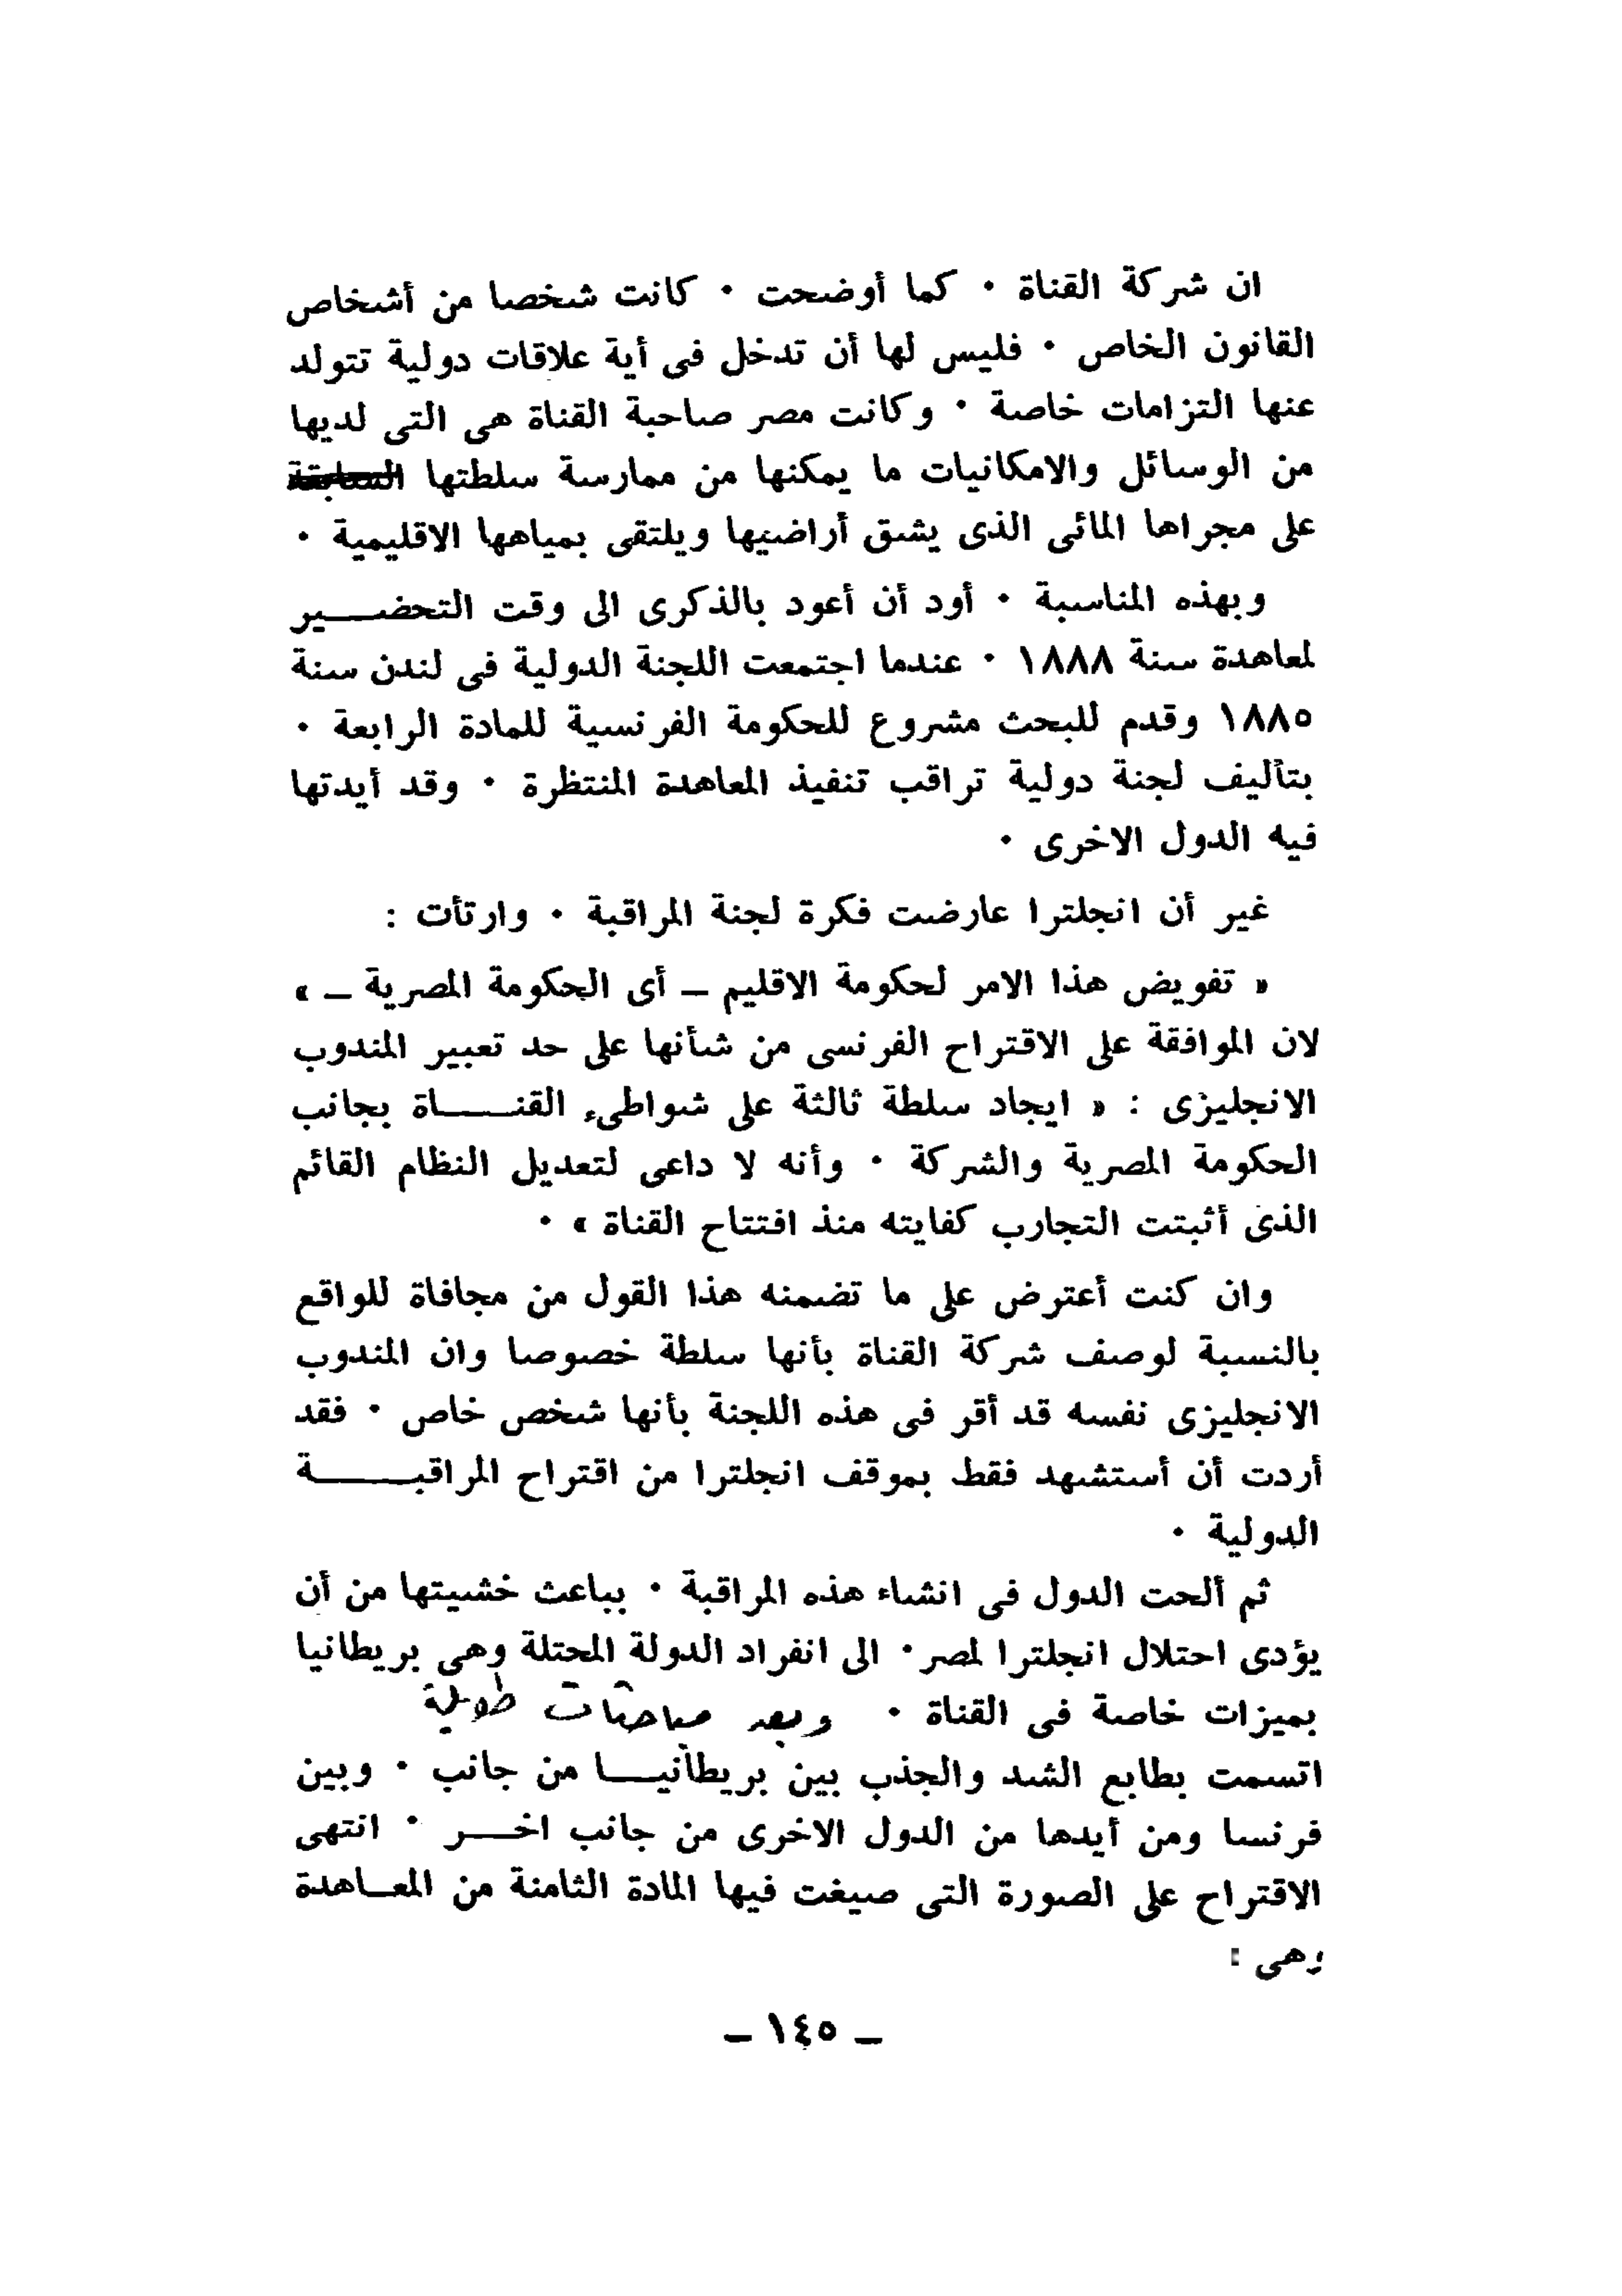 ان شركة القناة ٠ كما أوضحت ٠ كانت شخصا من أشخاص
القانون الخاص ٠ فليس لها أن تدخل فى أية علاقات دولية تتولد
عنها التزامات خاصة ٠ وكانت مصر صاحبة القناة هى التى لديها
من الوسائل والامكانيات ما يمكنها من ممارسة سلطتها السابقة
على مجراها المائى الذى يشق أراضيها ويلتقى بمياهها الاقليمية ٠
وبهذه المناسبة ٠ أود أن أعود بالذكرى الى وقت التحضـــير
لمعاهدة سنة ١٨٨٨ ٠ عندما اجتمعت اللجنة الدولية فى لندن سنة
١٨٨٥ وقدم للبحث مشروع للحكومة الفرنسية للمادة الرابعة ٠
بتأليف لجنة دولية تراقب تنفيذ المعاهدة المنتظرة ٠ وقد أيدتها
فيه الدول الاخرى ٠
غير أن انجلترا عارضت فكرة لجنة المراقبة ٠ وارتأت :
« تفويض هذا الامر لحكومة الاقليم ــ أى الحكومة المصرية ــ »
لان الموافقة على الاقتراح الفرنسى من شأنها على حد تعبير المندوب
الانجليزى : « ايجاد سلطة ثالثة على شواطىء القنـــاة بجانب
الحكومة المصرية والشركة ٠ وأنه لا داعى لتعديل النظام القائم
الذى أثبتت التجارب كفايته منذ افتتاح القناة » ٠
وان كنت أعترض على ما تضمنه هذا القول من مجافاة للواقع
بالنسبة لوصف شركة القناة بأنها سلطة خصوصا وان المندوب
الانجليزى نفسه قد أقر فى هذه اللجنة بأنها شخص خاص ٠ فقد
أردت أن أستشهد فقط بموقف انجلترا من اقتراح المراقبـــــة
الدولية ٠
ثم ألحت الدول فى انشاء هذه المراقبة ٠ بباعث خشيتها من أن
يؤدى احتلال انجلترا لمصر ٠ الى انفراد الدولة المحتلة وهى بريطانيا
بميزات خاصة فى القناة ٠ وبعد مباحثات طويلة
اتسمت بطابع الشد والجذب بين بريطانيــا من جانب ٠ وبين
فرنسا ومن أيدها من الدول الاخرى من جانب اخــر ٠ انتهى
الاقتراح على الصورة التى صيغت فيها المادة الثامنة من المعــاهدة
وهى :
ــ ١٤٥ ــ